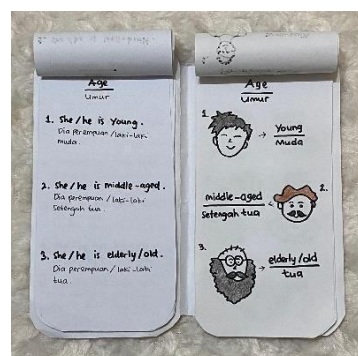 Age
Umur
1. She/he is Young.
Dia perempuan/laki-laki
muda.
2. She/he is middle-aged.
Dia perempuan/laki-laki
Setengah tua.
3. She/he is elderly/old.
Dia perempuan/laki-laki
tua.
Age
Umur
1.
Young
Muda
2.
middle-aged
Setengah tua
3.
elderly/old
tua